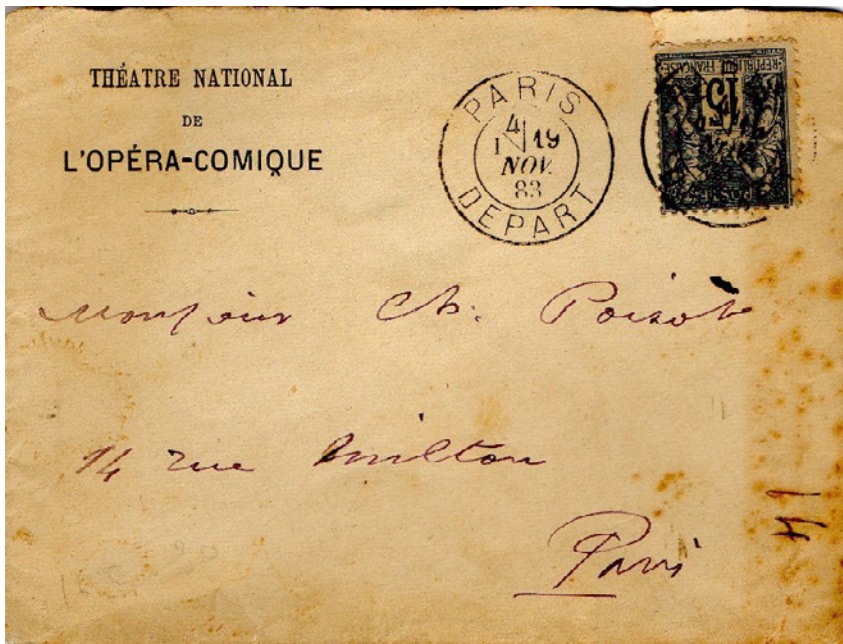 THÉATRE NATIONAL
DE
L'OPÉRA-COMIQUE
PARIS
4
19
NOV.
83
DEPART
REPUBLIQUE FRANÇAISE
15
POSTES
Monsieur Ch. Poisot
14 rue Milton
Paris
14